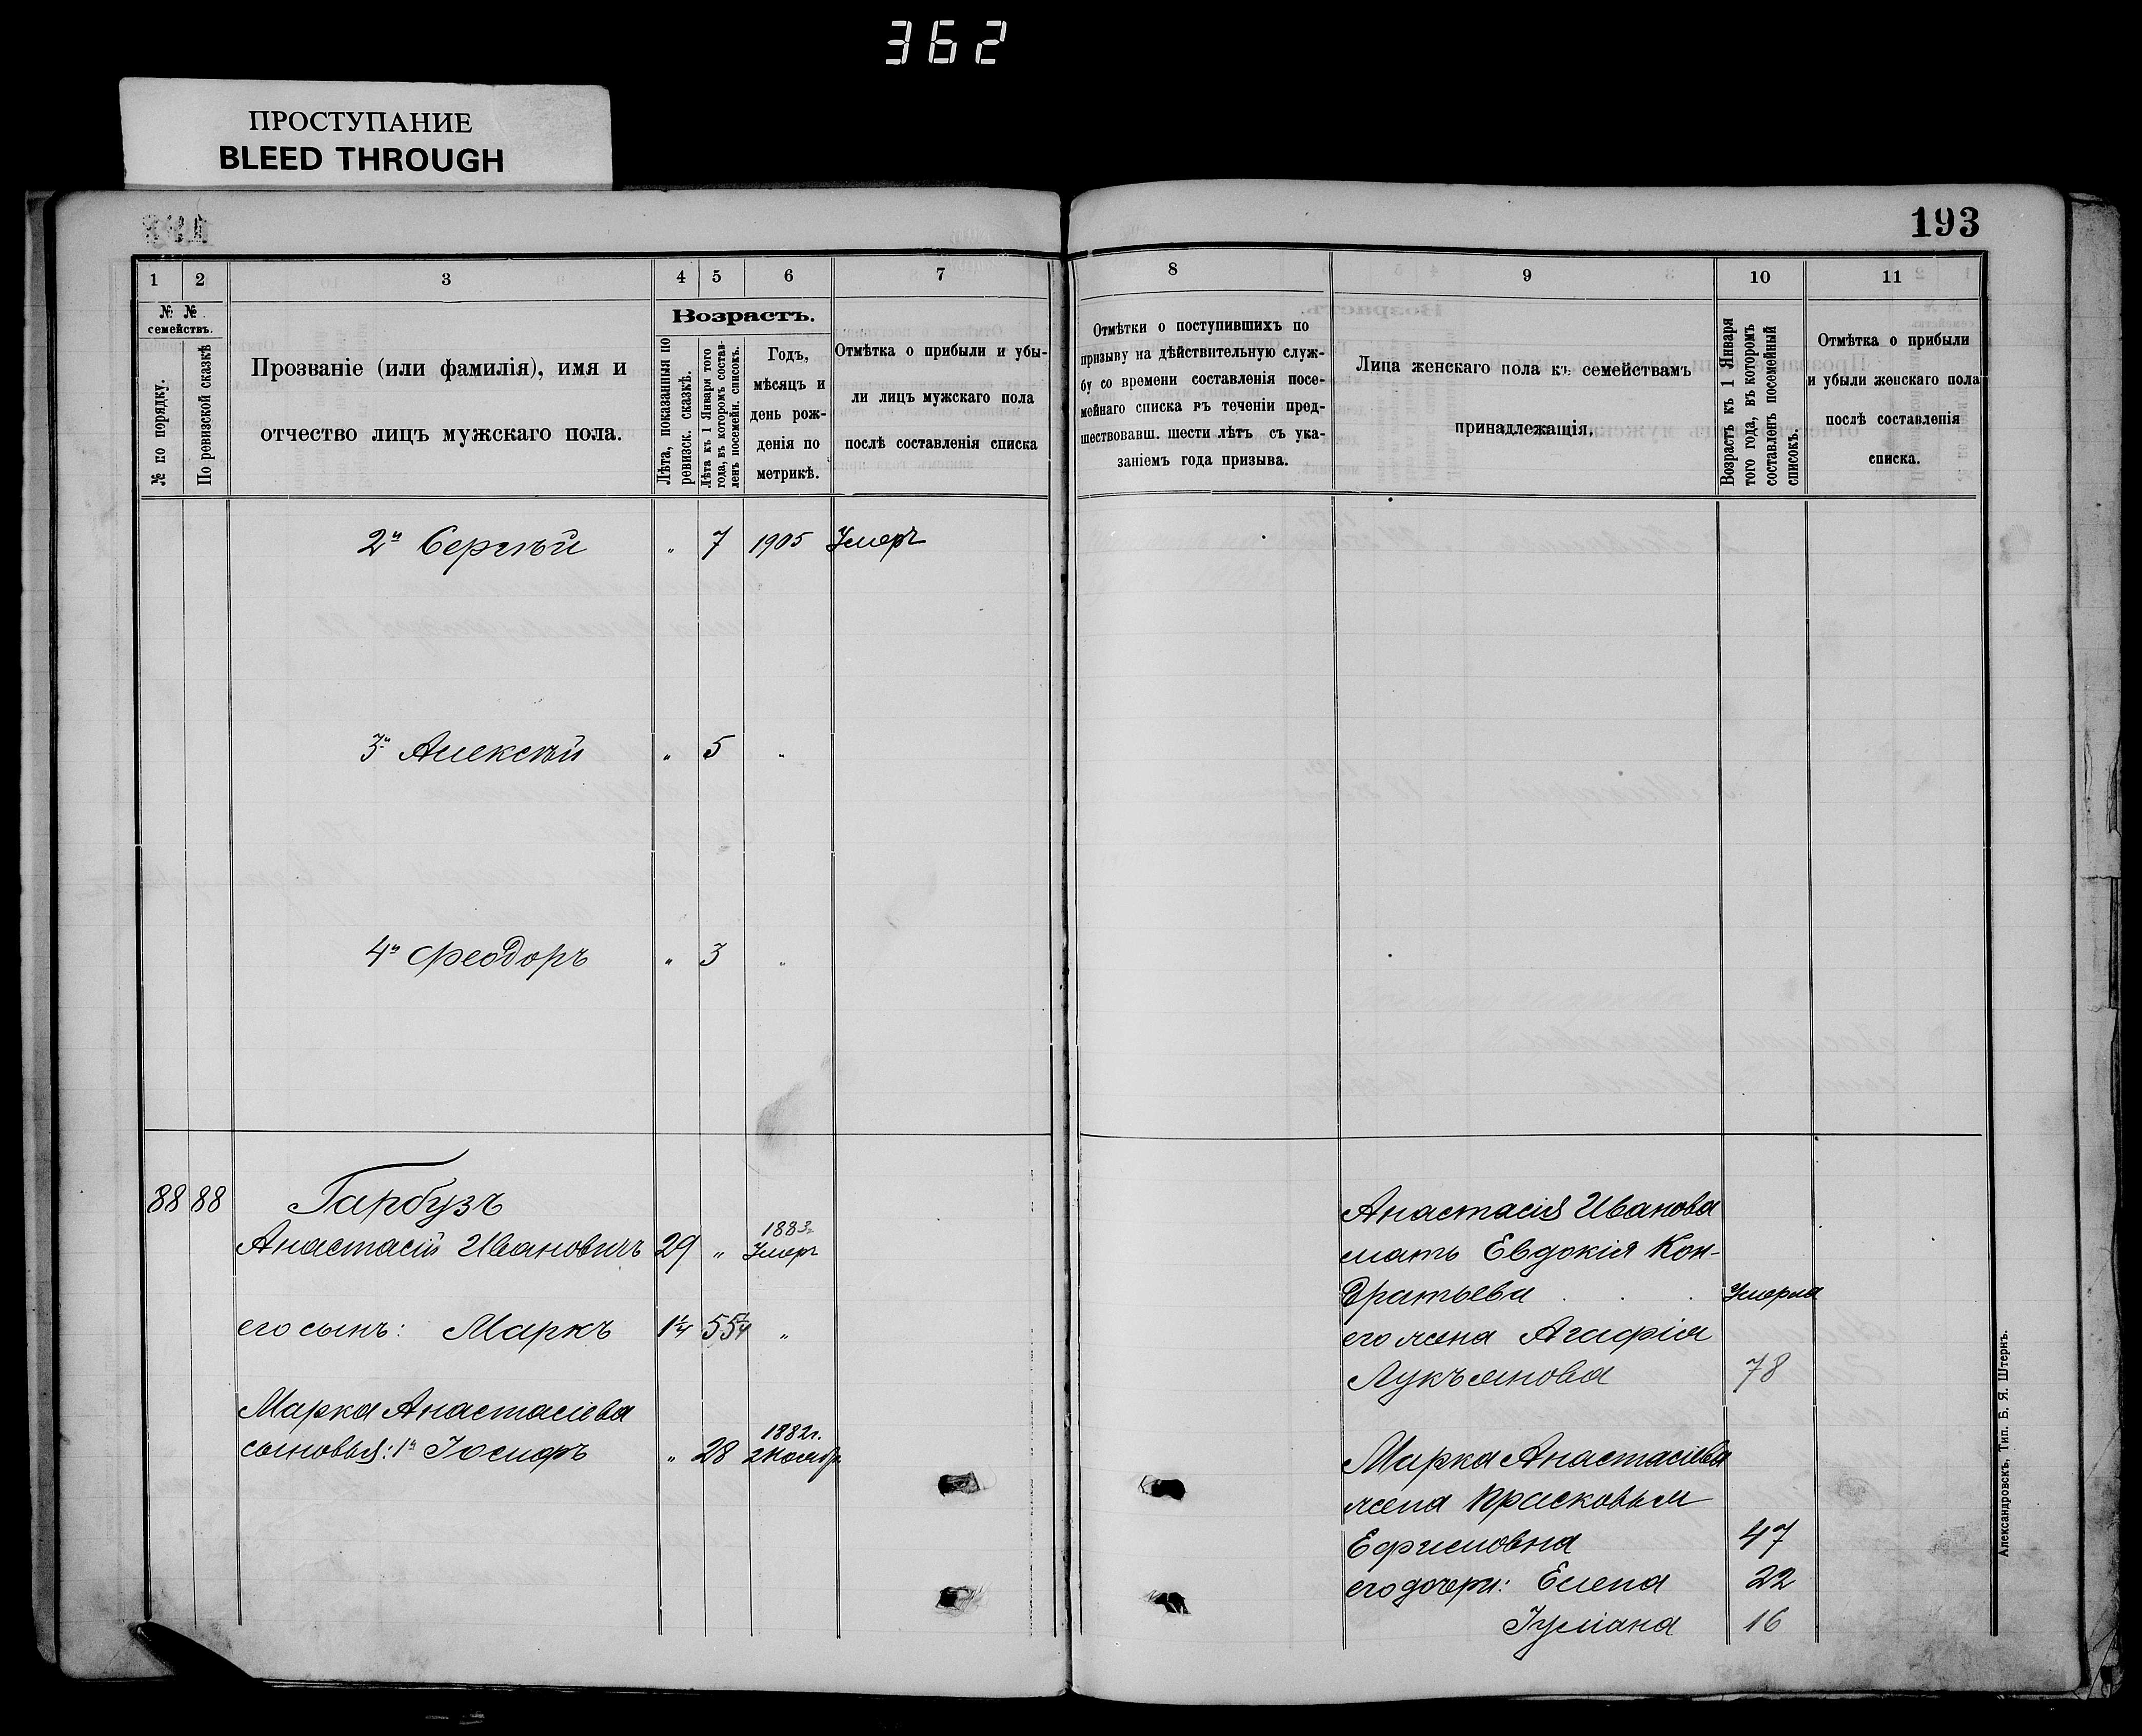 362
ПРОСТУПАНИЕ
BLEED THROUGH
193
1 2 3 4 5 6 7
№ № семействъ.
№ по порядку.
По ревизской сказкѣ
Прозваніе (или фамилія), имя и
отчество лицъ мужскаго пола.
Возрастъ.
Лѣта, показанныя по
ревизск. сказкѣ.
Лѣта къ 1 Января того
года, въ которомъ состав-
ленъ посемейн. списокъ.
Годъ,
мѣсяцъ и
день рож-
денія по
метрикѣ.
Отмѣтка о прибыли и убы-
ли лицъ мужскаго пола
послѣ составленія списка
2й Сергѣй " 7 1905 Умеръ
3й Алексѣй " 5 "
4й Феодоръ " 3 "
88 88 Гарбузъ
1883
Анастасій Ивановичъ 29 " Умеръ
его сынъ: Маркъ 55 "
Марка Анастасіева
1882г.
сыновья: 1й Іосифъ " 28 2 Ноября
8 9 10 11
Отмѣтки о поступившихъ по
призыву на дѣйствительную служ-
бу со времени составленія посе-
мейнаго списка въ теченіи пред-
шествовавш. шести лѣтъ съ ука-
заніемъ года призыва.
Лица женскаго пола къ семействамъ
принадлежащія.
Возрастъ къ 1 Января
того года, въ которомъ
составленъ посемейный
списокъ.
Отмѣтка о прибыли
и убыли женскаго пола
послѣ составленія
списка.
Анастасія Иванова
мать Евдокія Кон-
дратьева . . . Умерла
его жена Агафія
Лукъянова 78
Марка Анастасіева
жена Прасковья
Ефимовна 47
его дочери: Елена 22
Іуліана 16
Александровскъ, Тип. Б. Я. Штернъ.